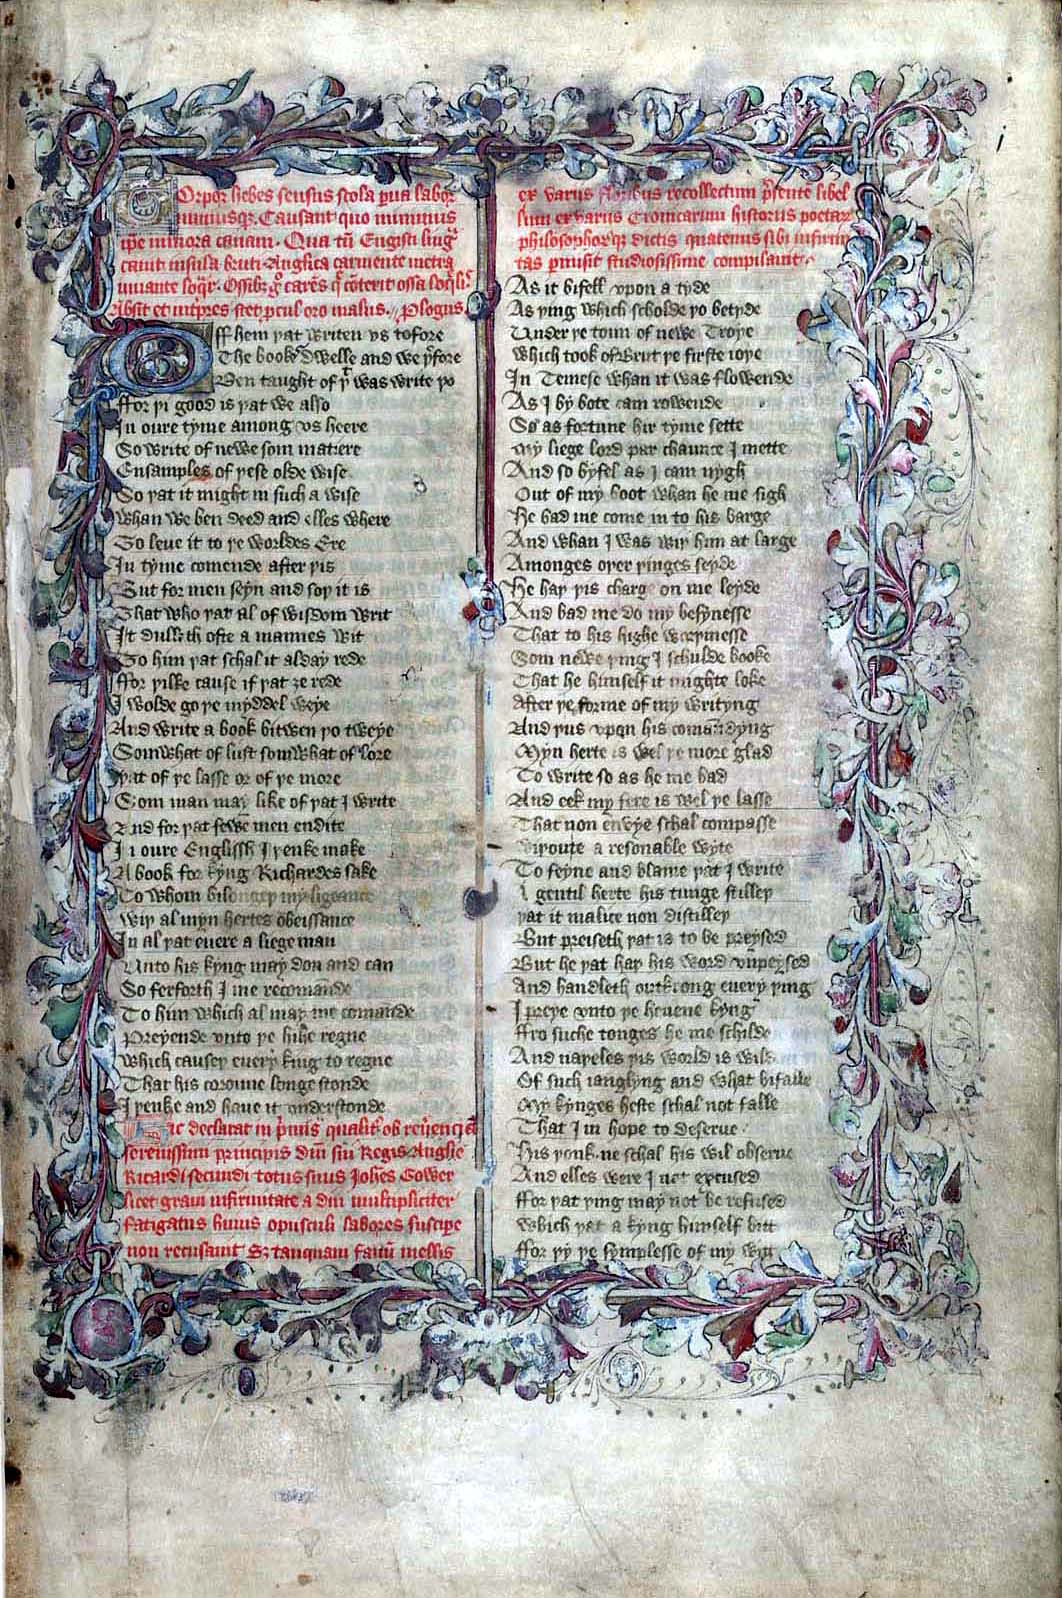 i
Orpor hebes sensus scola pua labor
minimusqȝ. Causant quo minimus
ipe minora canam. Qua tū Engisti
canit insula bruti. Anglica carmente metra
iuuante loqr. Ossibȝ carēs conterit ossa
Absit et intpres stet pcul oro malus. Plogus
Off hem þat writen vs tofore
The bookes dwelle and we þfore
Ben taught of þt was write þo
ffor þi good is þat we also
In oure tyme among vs heere
So write of newe som matiere
Ensamples of þese olde wise
So þat it might in such a wise
Whan we ben deed and elles where
So leue it to þe worldes Ere
In tyme comende after þis
But for men seyn and soþ it is
That who þat al of wisdom writ
It dulleth ofte a mannes wit
To him þat schal it alday rede
ffor þilke cause if þat ȝe rede
I wolde go þe myddel weye
And write a book bitwen þo tweye
Somwhat of lust somwhat of lore
þat of þe lasse or of þe more
Som man may like of þat I write
And for þat fewe men endite
In oure Englissh I þenke make
A book for kyng Richardes sake
To whom bilongeþ my ligeance
Wiþ al myn hertes obeissance
In al þat euere a liege man
Unto his kyng may don and can
So ferforth I me recomande
To him which al may me comande
Preyende vnto þe hihe regne
Which causeþ euery king to regne
That his coroune longe stonde
I þenke and haue it vnderstonde
Hic declarat in pmis qualit ob reuenciā
serenissimi principis dni sui Regis Anglie
Ricardi secundi totus suus Johes Gower
licet graui infirmitate a diu multipliciter
fatigatus huius opusculi labores suscipe
non recusauit Sȝ tanquam fauū mellis
ex varus floribus recollectum psente libel
lum ex varus Cronicarum historus poetar
philosophorqȝ dictis quatenus sibi infirmi
tas pmisit studiosissime compilauit.
As it bifell vpon a tyde
As þing which scholde þo betyde
Under þe toun of newe Troye
Which took of Brut þe firste ioye
In Temese whan it was flowende
As I by bote cam rowende
So as fortune hir tyme sette
My liege lord par chaunce I mette
And so byfel as I cam nygh
Out of my boot whan he me sigh
He bad me come in to his barge
And whan I was wiþ him at large
Amonges oþer þinges seyde
He haþ þis charge on me leyde
And bad me do my besynesse
That to his highe worþinesse
Som newe þing I schulde booke
That he himself it mighte loke
After þe forme of my writyng
And þus vpon his comandyng
Myn herte is wel þe more glad
To write so as he me bad
And eek my fere is wel þe lasse
That non envye schal compasse
Wiþoute a resonable wyte
To feyne and blame þat I write
A gentil herte his tunge stilleþ
þat it malice non distilleþ
But preiseth þat is to be preysed
But he þat haþ his word vnpeysed
And handleth outwrong every þing
I preye vnto þe heuene kyng
ffro suche tonges he me schilde
And naþeles þis world is wilde
Of such ianglyng and what bifalle
My kynges heste schal not falle
That I in hope to deserue
His þonk ne schal his wil obserue
And elles were I not excused
ffor þat þing may not be refused
Which þat a kyng himself bitt
ffor þy þe symplesse of my witt